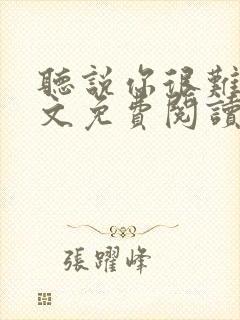 聽說你很難
文免費閱讀
張躍峰